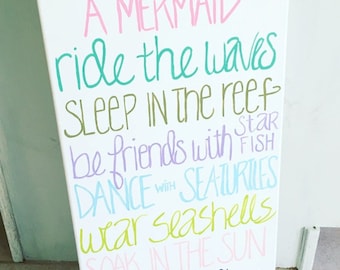 A MERMAID
ride the waves
SLEEP IN THE REEF
be friends with STAR FISH
DANCE with SEA-TURTLES
wear seashells
SOAK IN THE SUN